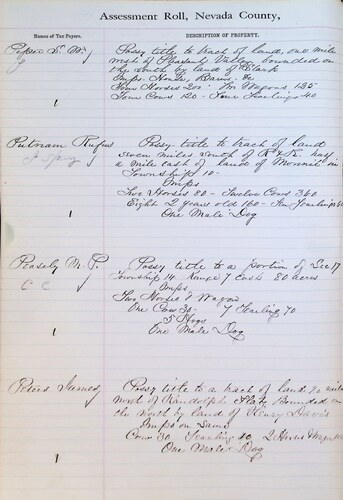 Assessment Roll, Nevada County,
Names of Tax Payers.
DESCRIPTION OF PROPERTY.
Possy title to tract of land, one mile
west of Pleasant Valley bounded on
the south by land of Clark
Imps. House, Barn &c
Four Horses 200 Wagons 135
Four Cows 120 - Four Yearlings 40
1
Putnam Rufus
Possy title to tract of land
seven miles south of half
a mile east of lands of in
Township 10 -
Imps
Two Horses 80 - Twelve Cows 360
Eight 2 years old 160 - Ten Yearlings
One Male Dog
1
Peasely M. P.
Possy title to a portion of Sec 17
Township 14 Range 7 East 80 acres
Imps
Two Horses & Wagon
One Cow 30 - 7 Yearling 70
5 Hogs
One Male Dog
1
Peters James
Possy title to a tract of land mile
north of Randolph Flat, Bounded on
the north by land of Henry Davis
Imps on Same
Cow 30 Yearling 2 Horses & Wagon
One Male Dog
1